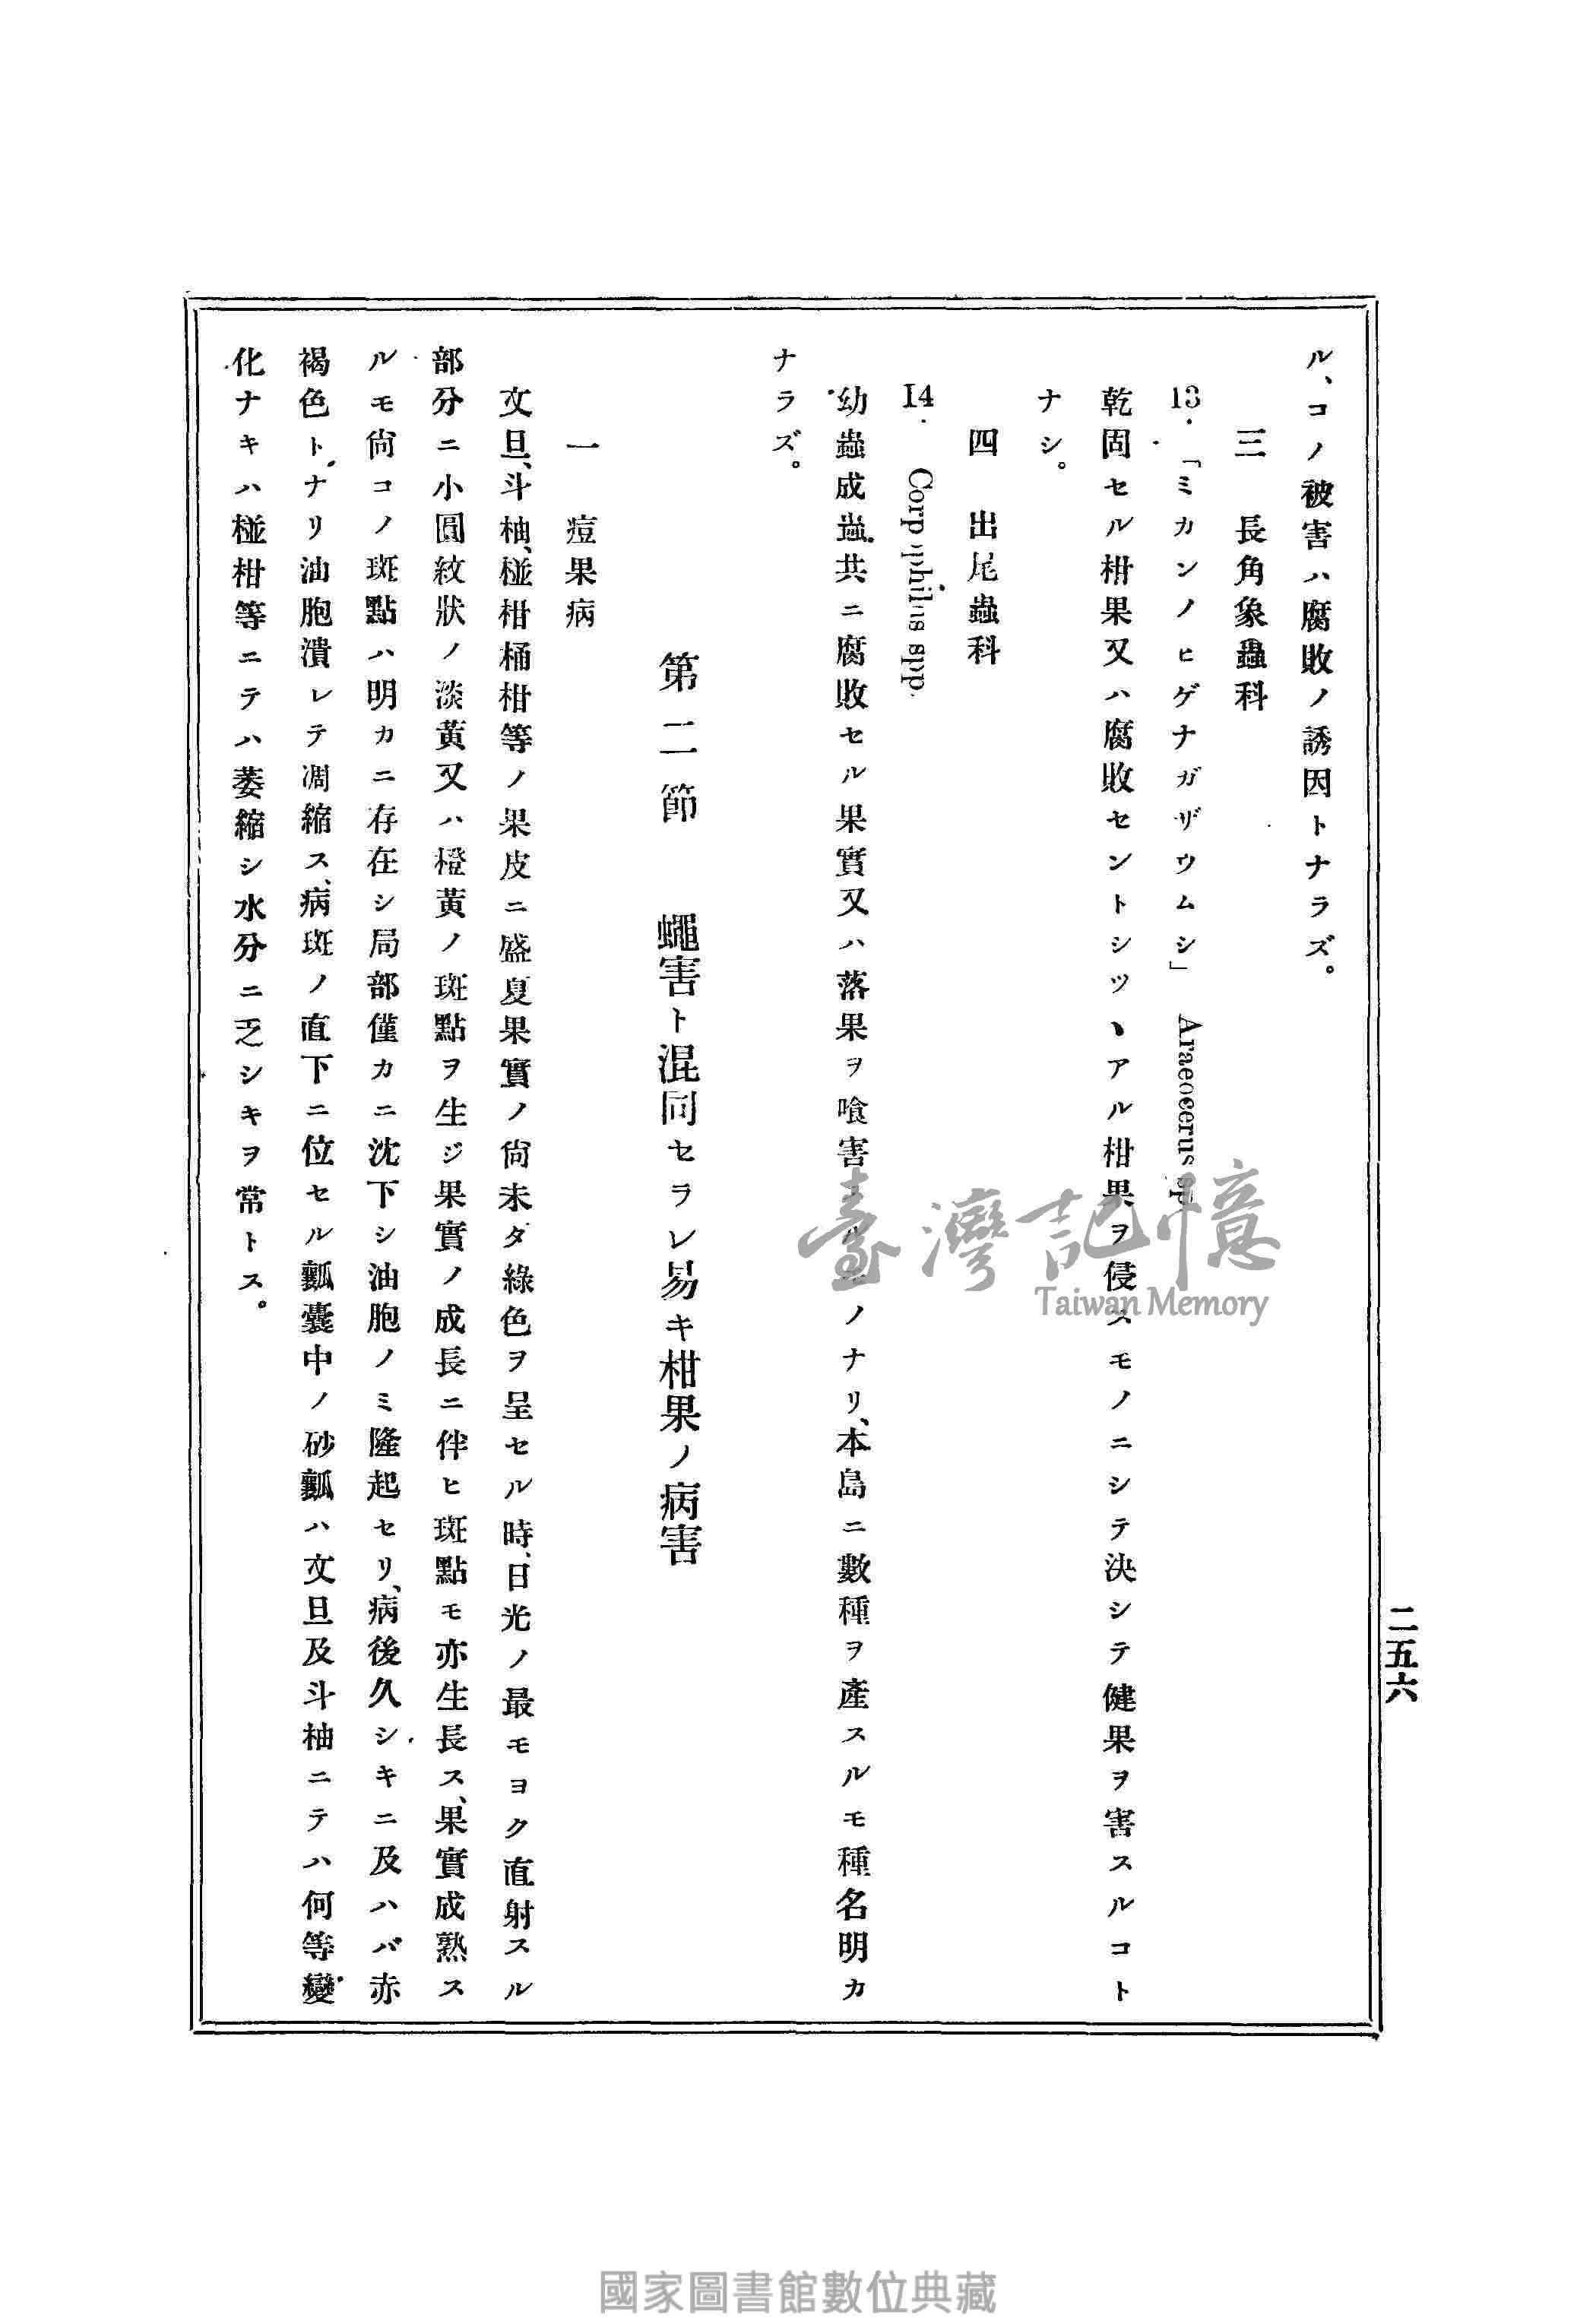 二五六
ル、コノ被害ハ腐敗ノ誘因トナラズ。
三 長角象蟲科
13.「ミカンノヒゲナガザウムシ」 Araeocerus sp
乾固セル柑果又ハ腐敗セントシツヽアル柑果ヲ侵スモノニシテ決シテ健果ヲ害スルコト
ナシ。
四 出尾蟲科
14. Corpophilus spp.
幼蟲成蟲共ニ腐敗セル果實又ハ落果ヲ喰害スルモノナリ、本島ニ數種ヲ產スルモ種名明カ
ナラズ。
第二節 蠅害ト混同セラレ易キ柑果ノ病害
一 痘果病
文旦、斗柚、椪柑桶柑等ノ果皮ニ盛夏果實ノ尙未ダ綠色ヲ呈セル時、日光ノ最モヨク直射スル
部分ニ小圓紋狀ノ淡黃又ハ橙黃ノ斑點ヲ生ジ果實ノ成長ニ伴ヒ斑點モ亦生長ス、果實成熟ス
ルモ尙コノ斑點ハ明カニ存在シ局部僅カニ沈下シ油胞ノミ隆起セリ、病後久シキニ及ハバ赤
褐色トナリ油胞潰レテ凋縮ス、病斑ノ直下ニ位セル瓤囊中ノ砂瓤ハ文旦及斗柚ニテハ何等變
化ナキハ椪柑等ニテハ萎縮シ水分ニ乏シキヲ常トス。
臺灣記憶
Taiwan Memory
國家圖書館數位典藏